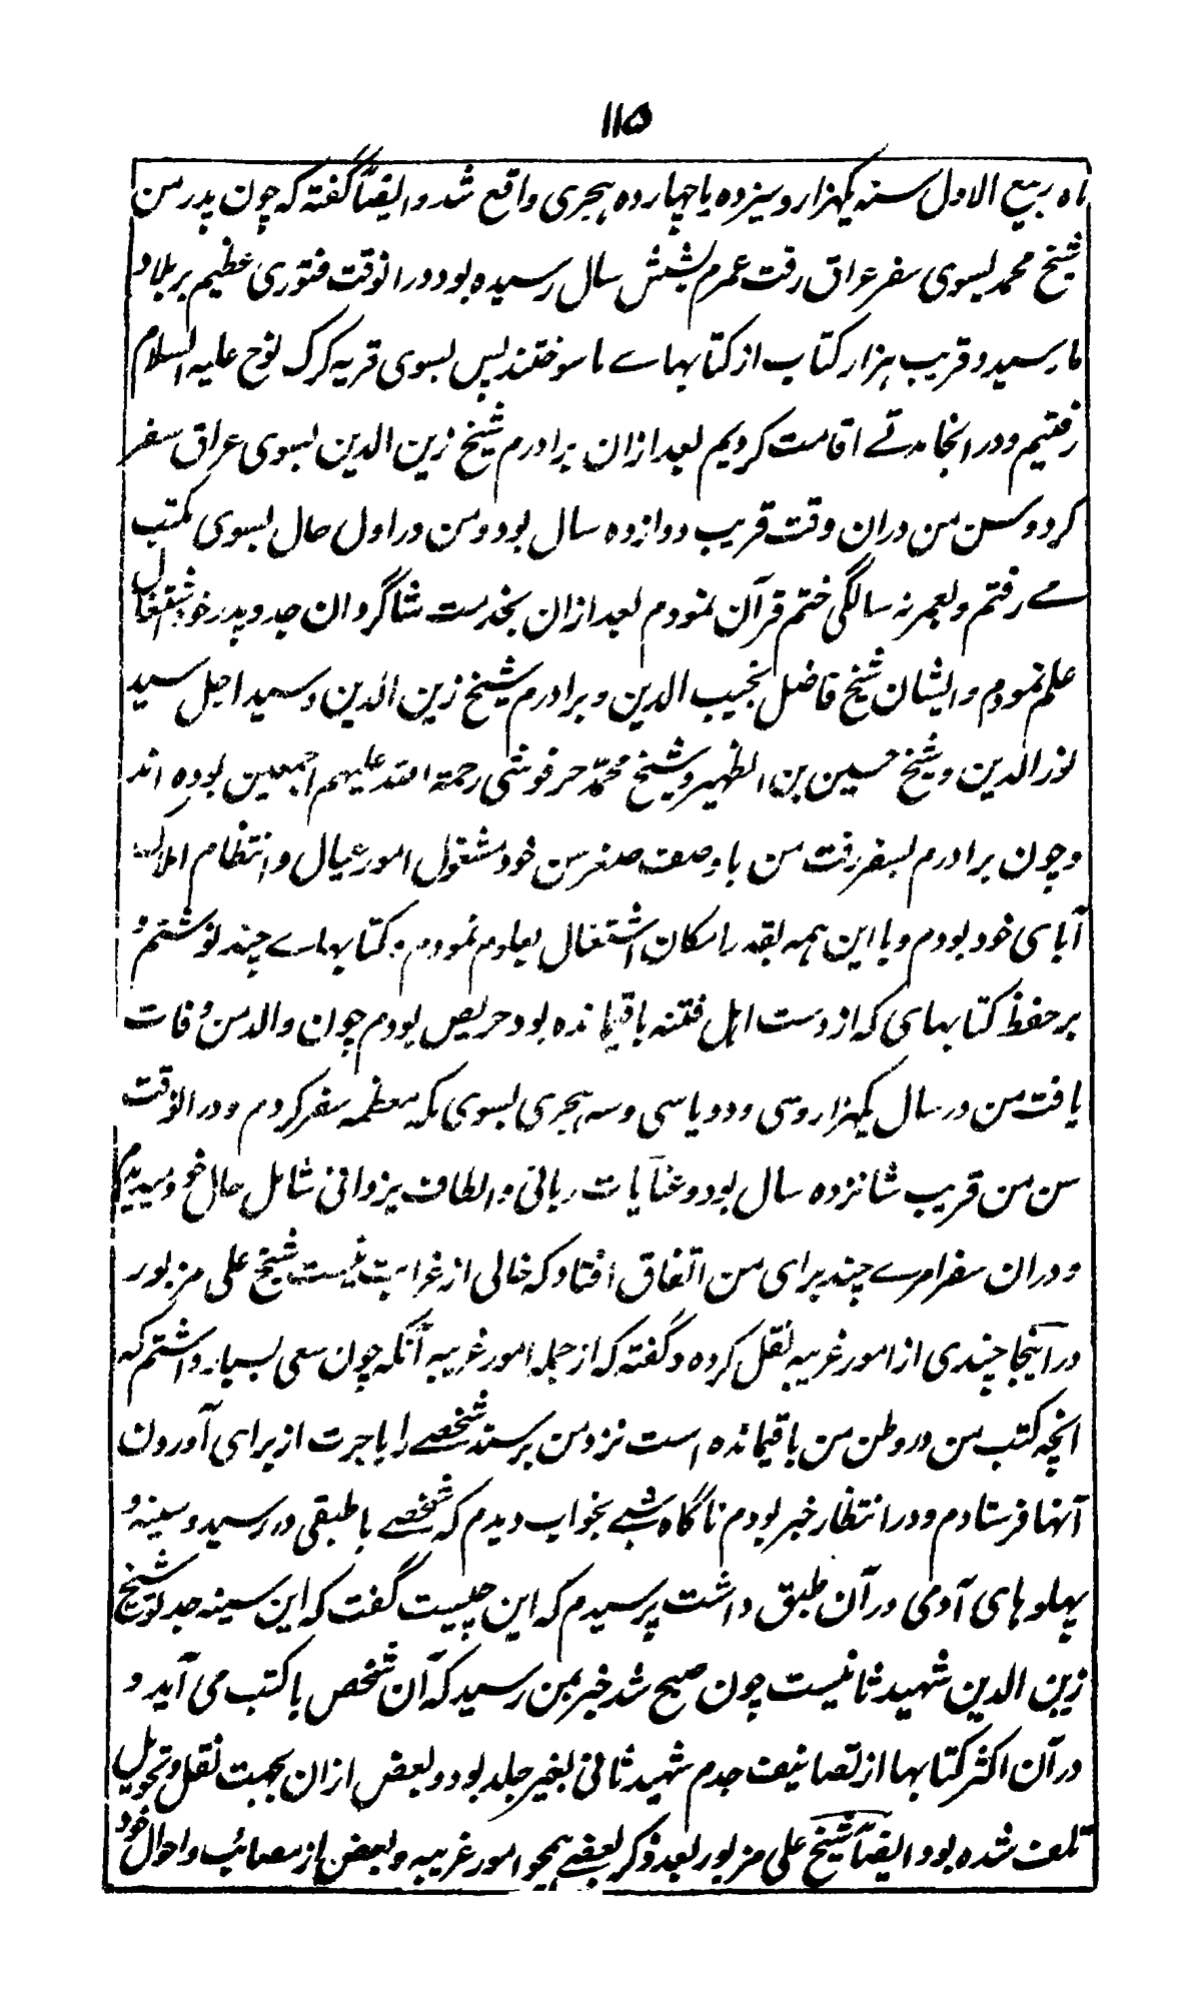 ۱۱۵
ماه ربیع الاول سنه یکهزار و سیزده یا چهارده هجری واقع شد و ایضاً گفته که چون پدر من
شیخ محمد بسوی سفر عراق رفت عمرم بشش سال رسیده بود و در انوقت فتوری عظیم بر بلاد
ما رسید و قریب هزار کتاب از کتابهاے ما سوختند پس بسوی قریه کرک نوح علیه السلام
رفتیم و در انجا مدتے اقامت کردیم بعد ازان برادرم شیخ زین الدین بسوی عراق سفر
کرد و سن من دران وقت قریب دوازده سال بود و من در اول حال بسوی مکتب
مے رفتم و بعمر نه سالگی ختم قرآن نمودم بعد ازان بخدمت شاگردان جد و پدر خود اشتغال
علم نمودم و ایشان شیخ فاضل نجیب الدین و برادرم شیخ زین الدین و سید اجل سید
نور الدین و شیخ حسین بن الظهیر و شیخ محمد حرفوشی رحمة الله علیهم اجمعین بوده اند
و چون برادرم بسفر رفت من با وصف صغر سن خود مشغول امور عیال و انتظام املاک
آبای خود بودم و با این همه بقدر امکان اشتغال بعلوم نمودم و کتابهاے چند نوشتم و
بر حفظ کتابهای که از دست اهل فتنه باقیمانده بود حریص بودم چون والد من وفات
یافت من در سال یکهزار و سی و دو یا سی و سه هجری بسوی مکه معظمه سفر کردم و در انوقت
سن من قریب شانزده سال بود و عنایات ربانی و الطاف یزدانی شامل حال خود میدیدم
و دران سفر امرے چند برای من اتفاق افتاد که خالی از غرابت نیست شیخ علی مزبور
در اینجا چندی از امور غریبه نقل کرده و گفته که از جمله امور غریبه آنکه چون سعی بسیار داشتم که
انچه کتب من در وطن من باقیمانده است نزد من برسد شخصے را باجرت از برای آوردن
آنها فرستادم و در انتظار خبر بودم ناگاه شبے بخواب دیدم که شخصے با طبقی در رسید و سینه و
پهلوهای آدمی در آن طبق داشت پرسیدم که این چیست گفت که این سینه جد تو شیخ
زین الدین شهید ثانیست چون صبح شد خبر بمن رسید که آن شخص با کتب می آید و
در آن اکثر کتابها از تصانیف جدم شهید ثانی بغیر جلد بود و بعض ازان بجهت نقل و تحویل
تلف شده بود و ایضاً شیخ علی مزبور بعد ذکر بعضے همچو امور غریبه و بعض از مصائب و احوال خود